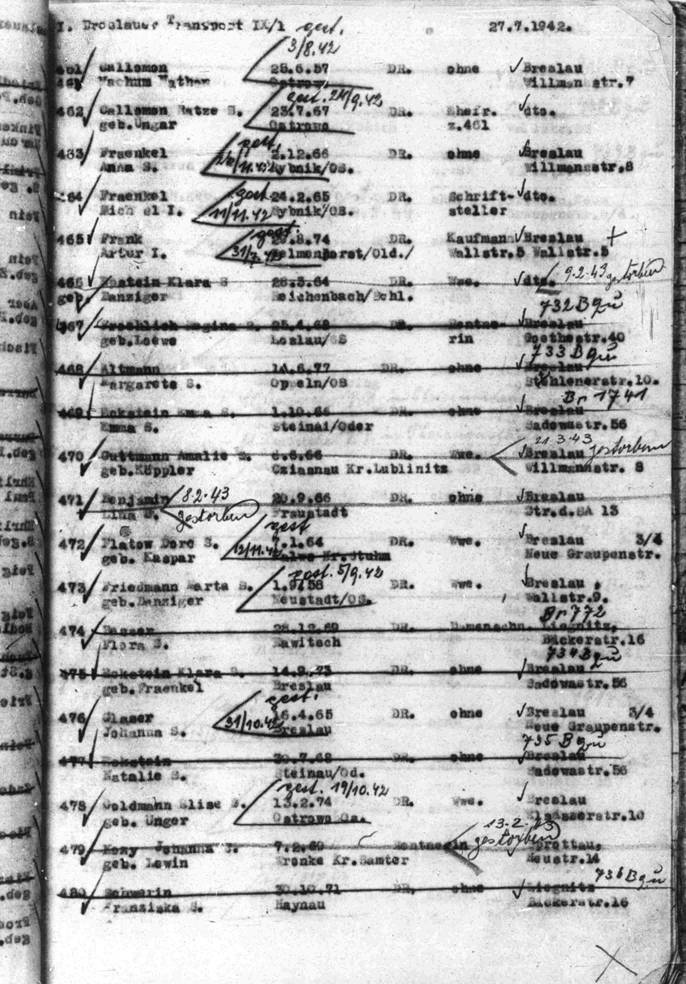 I. Breslauer Transport IX/1 gest. 27.7.1942.
3/8.42
461 Callomon 28.6.57 DR. ohne Breslau
Nachum Nathan Ostrowo Willmannstr.7
gest. 24/9.42
462 Callomon Ratze S. 23.7.67 DR. Ehefr. dto.
geb.Ungar Ostrowo z.461
gest.
463 Fraenkel 2.12.66 DR. ohne Breslau
Anna S. 11.42 Rybnik/OS. Willmannstr.8
gest.
464 Fraenkel 24.2.65 DR. Schrift- dto.
Michael I. 11/11.42 Rybnik/OS. steller
gest.
465 Frank 8.74 DR. Kaufmann Breslau +
Artur I. Delmenhorst/Old./ Wallstr.5 Wallstr.5
9.2.43 gestorben
466 Epstein Klara S 26.3.64 DR. Wwe. dto.
geb. Danziger Reichenbach/Schl.
732 Bgü
467 Froehlich Regina S. 25.4.68 DR. Rentne- Breslau
geb.Loewe Loslau/OS rin Goethestr.40
733 Bgü
468 Altmann 14.6.77 DR. ohne Breslau
Margarete S. Oppeln/OS
Br 1741
469 Eckstein Emma S. 1.10.66 DR. ohne Breslau
Emma S. Steinau/Oder Sadowastr.56
21.3.43 gestorben
470 Guttmann Amalie S. 6.6.66 DR. Wwe. Breslau
geb.Köppler Kr.Lublinitz Willmannstr. 8
8.2.43
471 Benjamin 20.9.66 DR. ohne Breslau
Lina S. gestorben Fraustadt Str.d.SA 13
gest
472 Flatow Dore S. 1.64 DR. Wwe. Breslau 3/4
geb. Kaspar 12/11.42 Kr.Stuhm Neue Graupenstr.
gest. 5/9.42
473 Friedmann Marta S. DR. Wwe. Breslau
geb.Danziger Neustadt/OS. Wallstr.9.
Br 772
474 28.12.69 DR. Liegnitz,
Flora S. Rawitsch Bäckerstr.16
734 Bgü
475 Eckstein Klara S. 14.9.73 DR. ohne Breslau
geb.Fraenkel Breslau Sadowastr.56
gest.
476 Glaser 6.4.65 DR. ohne Breslau 3/4
Johanna S. 31/10.42 Breslau Neue Graupenstr.
735 Bgü
477 Eckstein 30.7.68 DR. ohne Breslau
Natalie S. Steinau/Od. Sadowastr.56
gest. 19/10.42
478 Goldmann Elise S. 13.2.74 DR. Wwe. Breslau
geb. Unger Ostrowo Elsasserstr.10
13.2.43
gestorben
479 Johanna S. 7.2.60 Rentnerin Grottau,
geb. Lewin Wronke Kr.Samter Neustr.14
736 Bgü
480 Schwerin 30.10.71 DR. ohne Liegnitz
Franziska S. Haynau Bäckerstr.16